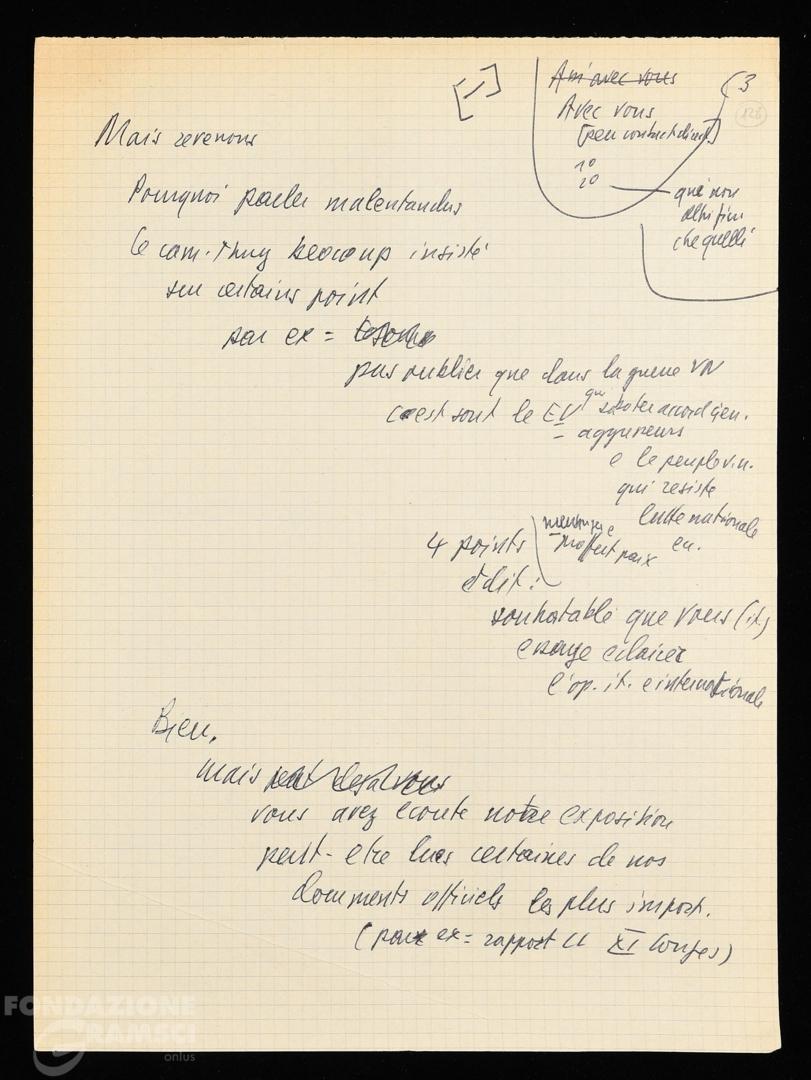 [-]
Ami avec vous
Avec vous
[peu contact direct]
1º
2º
(3
128
que non
altri fini
che quelli
Mais revenons
Pourquoi parler malentendus
Le cam. Thuy beocoup insisté
sur certains point
par ex =
pas oublier que dans la guerre VN
c'est sont le EU que saboter accord Gen.
= aggresseurs
e le peuple v.n.
qui resiste
lutte nationale
4 points
et dit:
souhatable que vous (it)
esaye eclairer
l'op. it. e internationale
Bien,
mais
vous avez ecoute notre exposition
peut-etre lues certaines de nos
documents officiels les plus import.
(par ex = rapport CC XI Congres)
FONDAZIONE
GRAMSCI
onlus